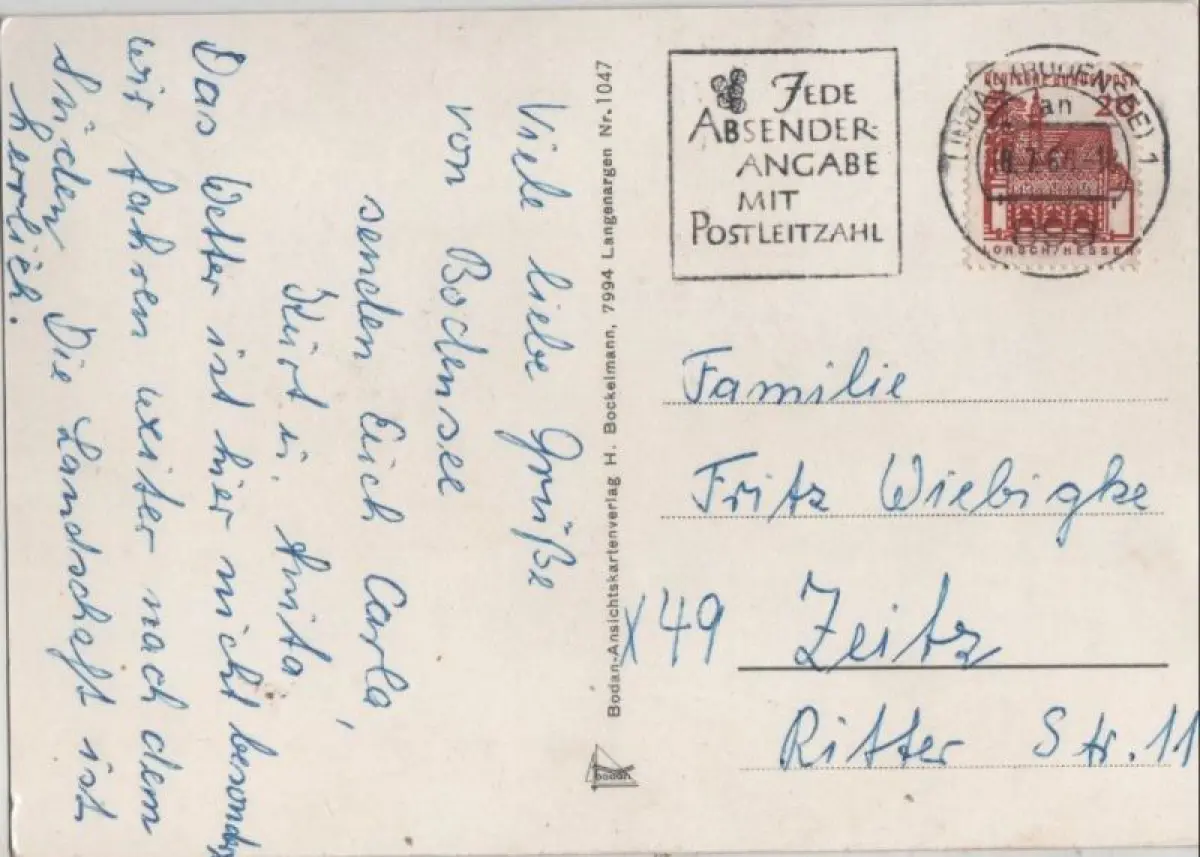 Viele liebe Grüße
von Bodensee
senden Euch Carla,
Kurt u. Anita,
Das Wetter ist hier nicht besonders
wir fahren weiter nach dem
Süden. Die Landschaft ist
herrlich.
Bodan-Ansichtskartenverlag H. Bockelmann, 7994 Langenargen Nr. 1047
bodan
JEDE
ABSENDER-
ANGABE
MIT
POSTLEITZAHL
DEUTSCHE BUNDESPOST
20
LORSCH/HESSEN
LINDAU (BODENSEE) 1
an
Familie
Fritz Wiebigke
X49 Zeitz
Ritter Str. 11